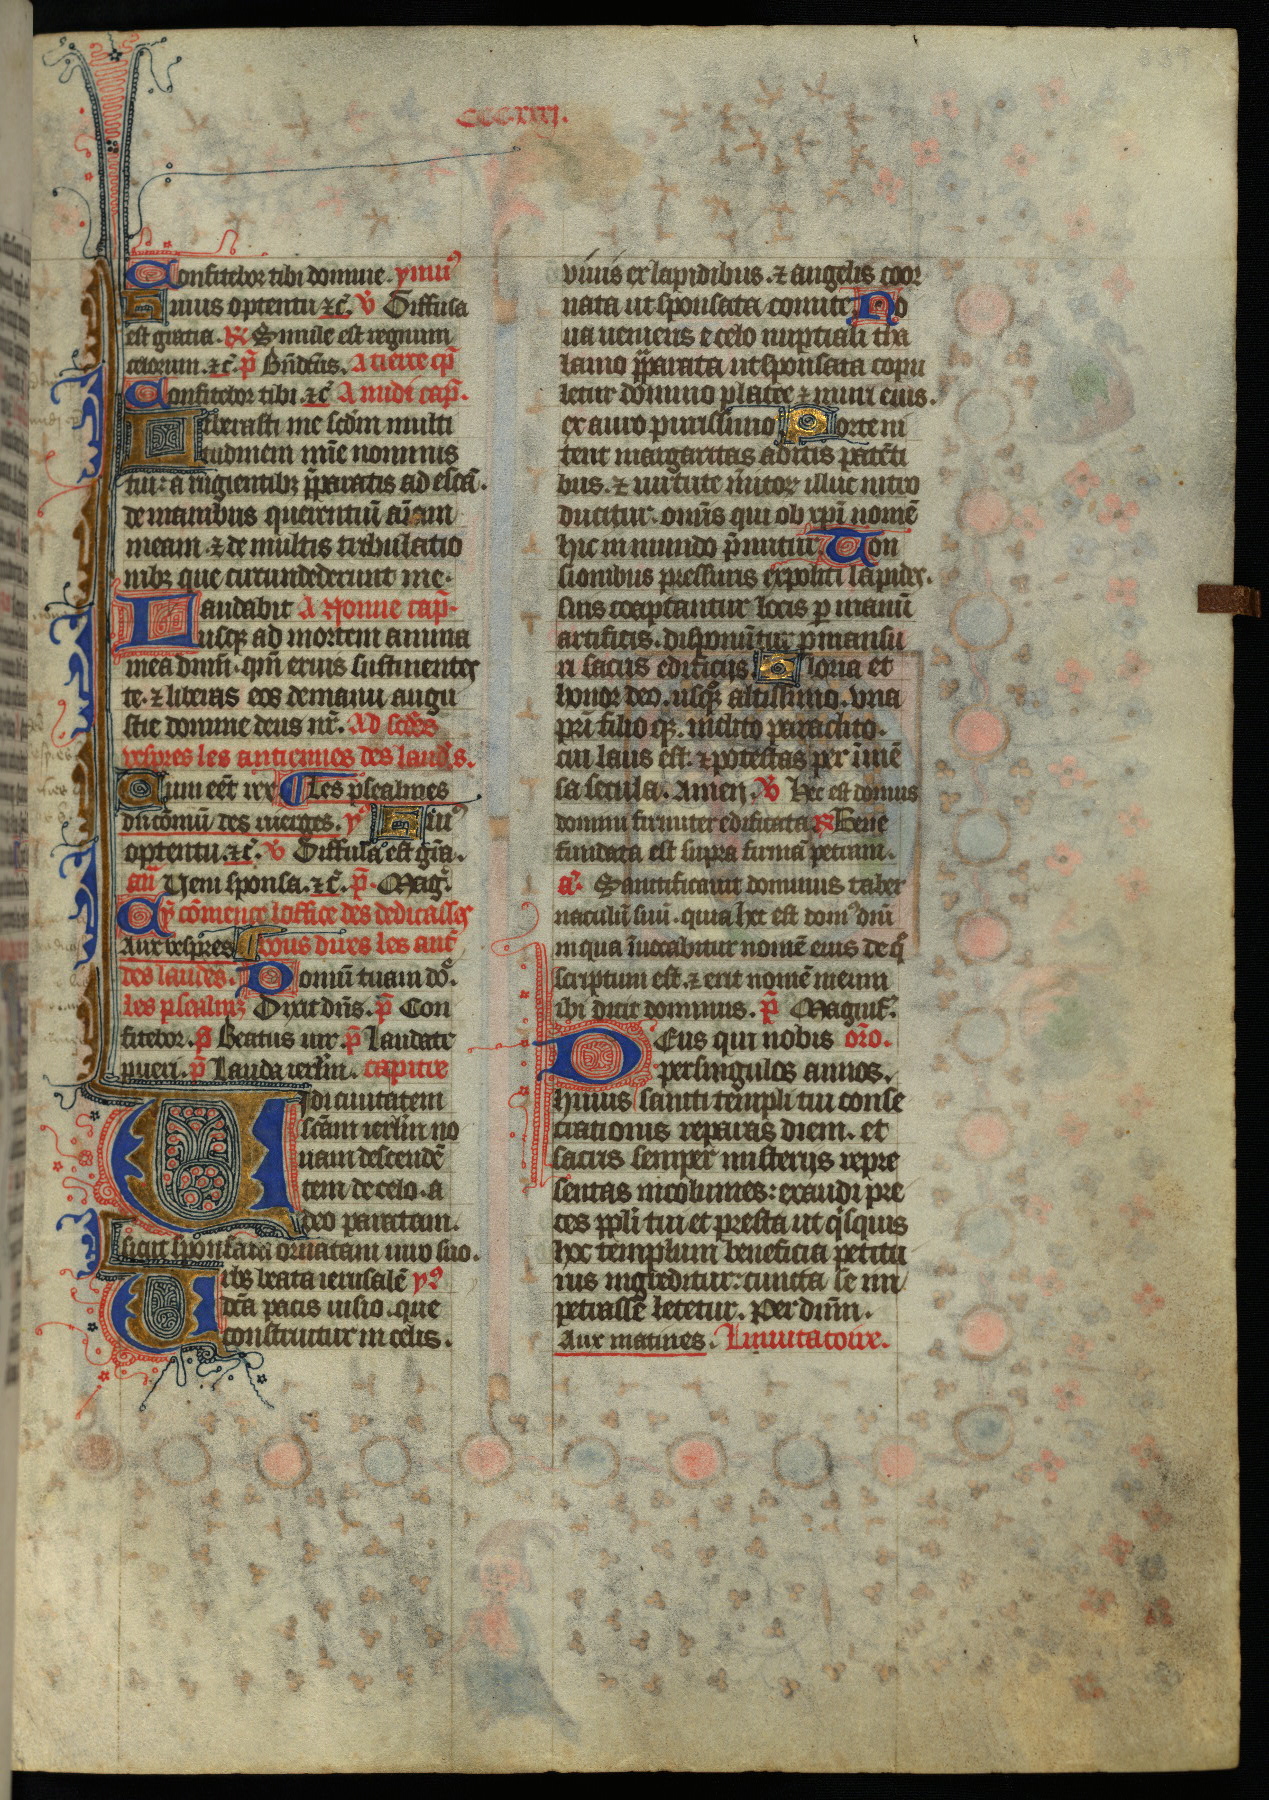 CCCxxxj.
Confitebor tibi domine. ymn᷒
Huius optentu ⁊c̃. v̄ Diffusa
est gratia. R̃ Simile est regnum
celorum. ⁊c̃. p̄ Bn̄dcūs. A tierce cap̄
Confitebor tibi. ⁊c̃ A midi cap̄.
Liberasti me sc̄dm multi
tudinem mīe nominis
tui: a rugientib; p̄paratis ad escā.
de manibus querentiū aīam
meam. ⁊ de multis tribulatio
nib; que circundederunt me.
Laudabit A Nonne cap̄.
usq; ad mortem anima
mea dn̄m. qm̄ eruis sustinentes
te. ⁊ liberas eos de manu angu
stie domine deus nr̄. Ad scd̄es
vespres les antiennes des laudes.
Cum eēt rex Les psealmes
du comū des vierges. y᷒ Huī᷒
optentu. ⁊c̃. v̄ Diffusa est gr̄a.
an̄ Veni sponsa. ⁊c̃. p̄. Mag̃.
Cy cōmence loffice des dedicasses
Aux vespres Tous dires les ant̄
des laudes. Domū tuam do᷒.
les psealm; Dixit dn̄s. p̄ Con
fitebor. p̄ Beatus uir. p̄ Laudate
pueri. p̄ Lauda ierl̄m. capitre
Vidi ciuitatem
sc̄am ierl̄m no
uam descendē
tem de celo. a
deo paratam.
sicut sponsam ornatam uiro suo.
Urbs beata ierusalē y᷒
dc̄a pacis uisio. que
construitur in celis.
viuis ex lapidibus. ⁊ angelis coor
nata ut sponsata comite No
ua ueniens e celo nuptiali tha
lamo p̄parata ut sponsata copu
letur domino platee ⁊ muri eius.
ex auro purissimo Porte ni
tent margaritas aditis patēti
bus. ⁊ uirtute m̄itor illuc intro
ducitur. omis qui ob xp̄i nomē
hic in mundo p̄mitur. Ton
sionibus pressuris expoliti lapides.
suis coaptantur locis p manū
artificis. disponūtur p̄mansu
ri sacris edificijs. Gloria et
honor deo. usq; altissimo. vna
pri filio q;. inclito paraclito.
cui laus est. ⁊ potestas per īmē
sa secula. Amen. v̄ Hec est domus
domini firmiter edificata R̃ Bene
fundata est supra firmā petram.
a᷒. Sanctificauit dominus taber
naculū suū. quia hec est dom᷒ dn̄i
in qua īuocabitur nomē eius de q̊
scriptum est. ⁊ erit nomē meum
ibi dicit dominus. p̄. Magnif᷒.
Deus qui nobis orō.
per singulos annos.
huius sancti templi tui conse
crationis reparas diem. et
sacris semper misterijs repre
sentas incolumes: exaudi pre
ces pp̄li tui et presta ut q̊squis
hoc templum beneficia petitu
rus ingreditur: cuncta se im
petrasse letetur. Per dn̄m.
Aux matines. Linuitatoire.